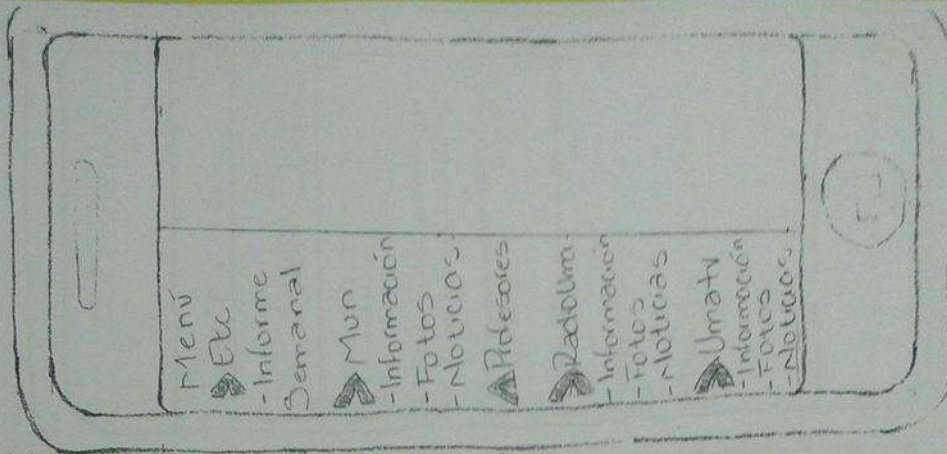 Menú
Etc
- Informe
Semanal
Mun
- Información
- Fotos
- Noticias
Profesores
Radiouma
- Información
- Fotos
- Noticias
Umatv
- Información
- Fotos
- Noticias